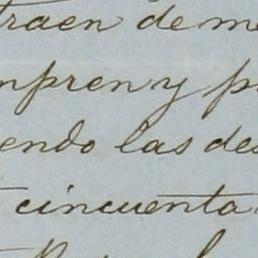 traen de me
npren y p
endo las des
cincuenta